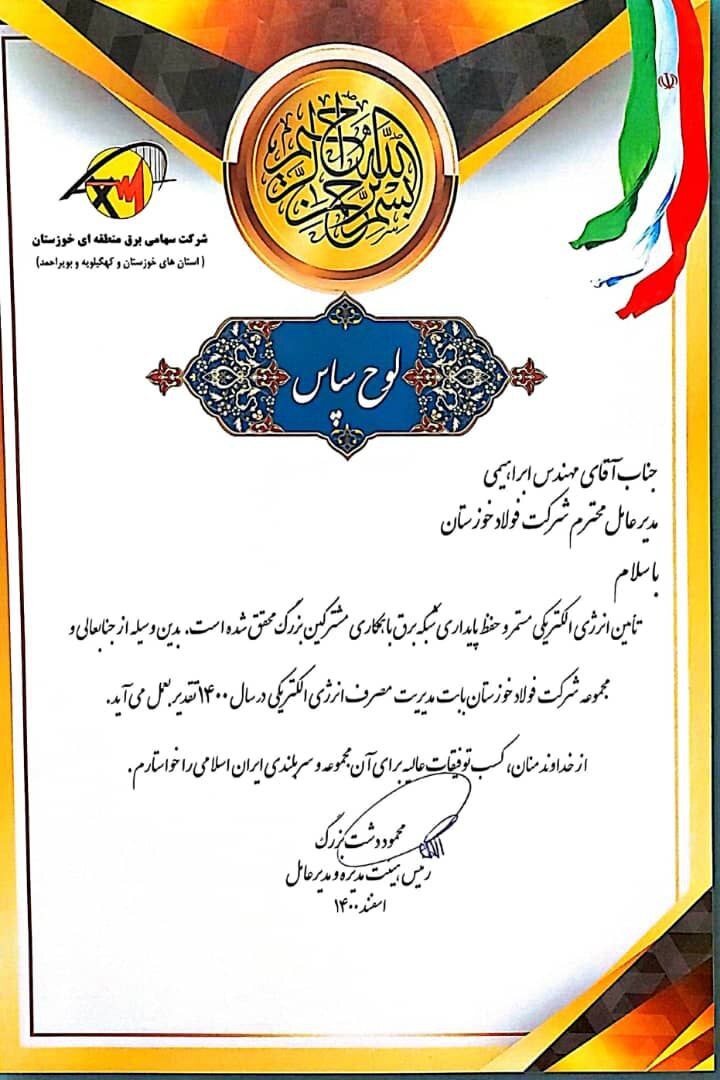 بسم الله الرحمن الرحیم
شرکت سهامی برق منطقه ای خوزستان
( استان های خوزستان و کهگیلویه و بویراحمد)
لوح سپاس
جناب آقای مهندس ابراهیمی
مدیرعامل محترم شرکت فولاد خوزستان
باسلام
تأمین انرژی الکتریکی مستمر و حفظ پایداری شبکه برق با همکاری مشترکین بزرگ محقق شده است. بدین وسیله از جنابعالی و
مجموعه شرکت فولاد خوزستان بابت مدیریت مصرف انرژی الکتریکی در سال ۱۴۰۰ تقدیر بعمل می آید.
از خداوند منان، کسب توفیقات عالیه برای آن مجموعه و سربلندی ایران اسلامی را خواستارم.
محمود دشت بزرگ
رئیس هیئت مدیره و مدیرعامل
اسفند ۱۴۰۰